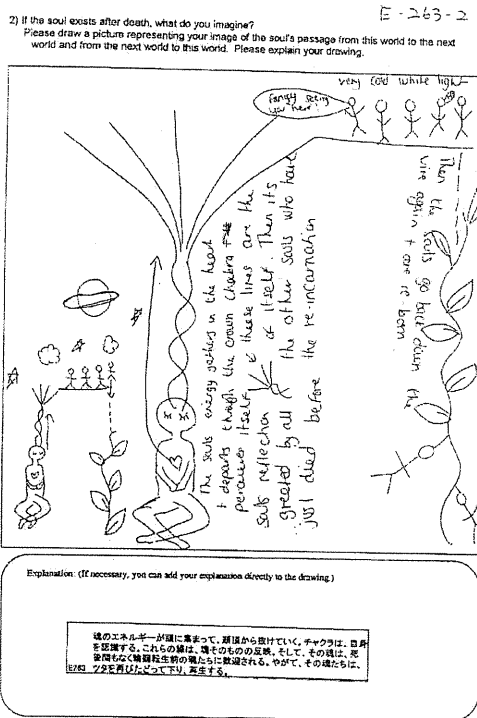 E-263-2
2) If the soul exists after death, what do you imagine?
Please draw a picture representing your image of the soul's passage from this world to the next
world and from the next world to this world. Please explain your drawing.
very cold white light
Fancy seeing
you here!
The souls energy gathers in the heart
+ departs through the crown chakra
itself & these lines are the
souls reflection of itself. Then its
greeted by all the other souls who have
just died before the re-incarnation
Then the souls go back down the
vine again + are re-born
Explanation: (If necessary, you can add your explanation directly to the drawing.)
魂のエネルギーが頭に集まって、頭頂から抜けていく。チャクラは、自身
を認識する。これらの線は、魂そのものの反映。そして、その魂は、死
後間もなく輪廻転生前の魂たちに歓迎される。やがて、その魂たちは、
E263 ツタを再びたどって下り、再生する。